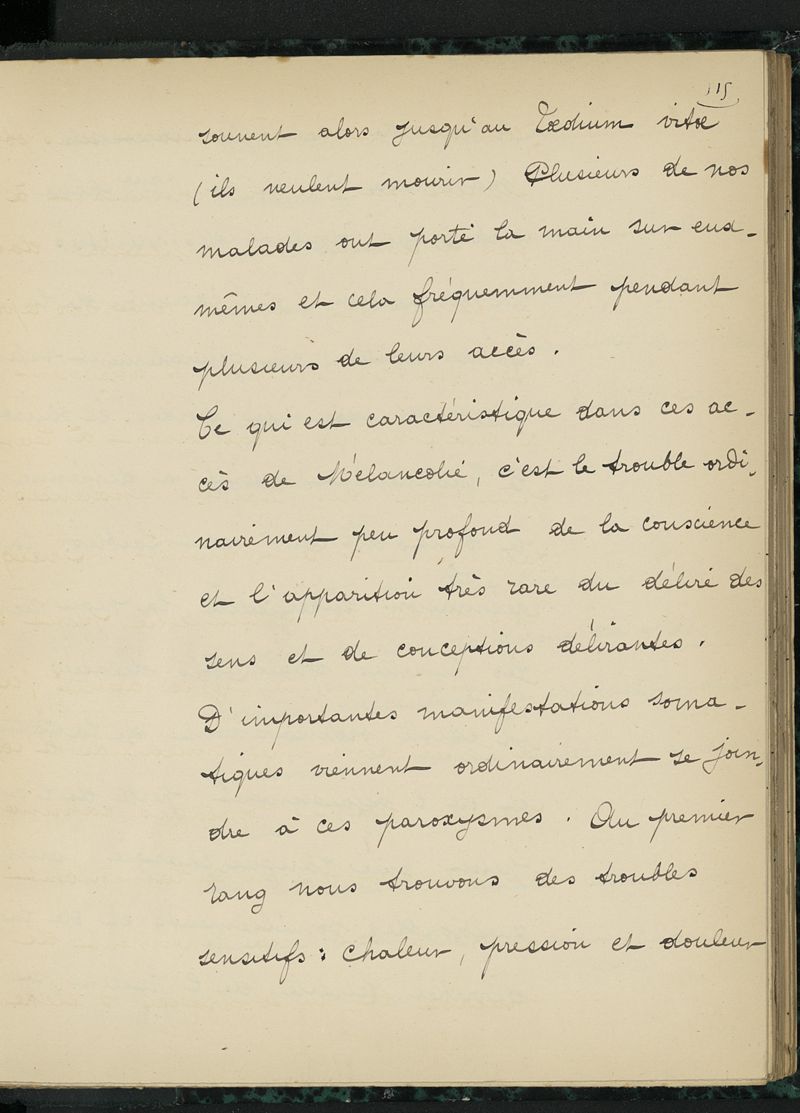 115
souvent alors jusqu'au Tædium vitæ
(ils veulent mourir) Plusieurs de nos
malades ont porté la main sur eux-
mêmes et cela fréquemment pendant
plusieurs de leurs accès.
Ce qui est caractéristique dans ces ac-
cès de Mélancolie, c'est le trouble ordi-
nairement peu profond de la conscience
et l'apparition très rare du délire des
sens et de conceptions délirantes.
D'importantes manifestations soma-
tiques viennent ordinairement se join-
dre à ces paroxysmes. Au premier
rang nous trouvons des troubles
sensitifs : chaleur, pression et douleur